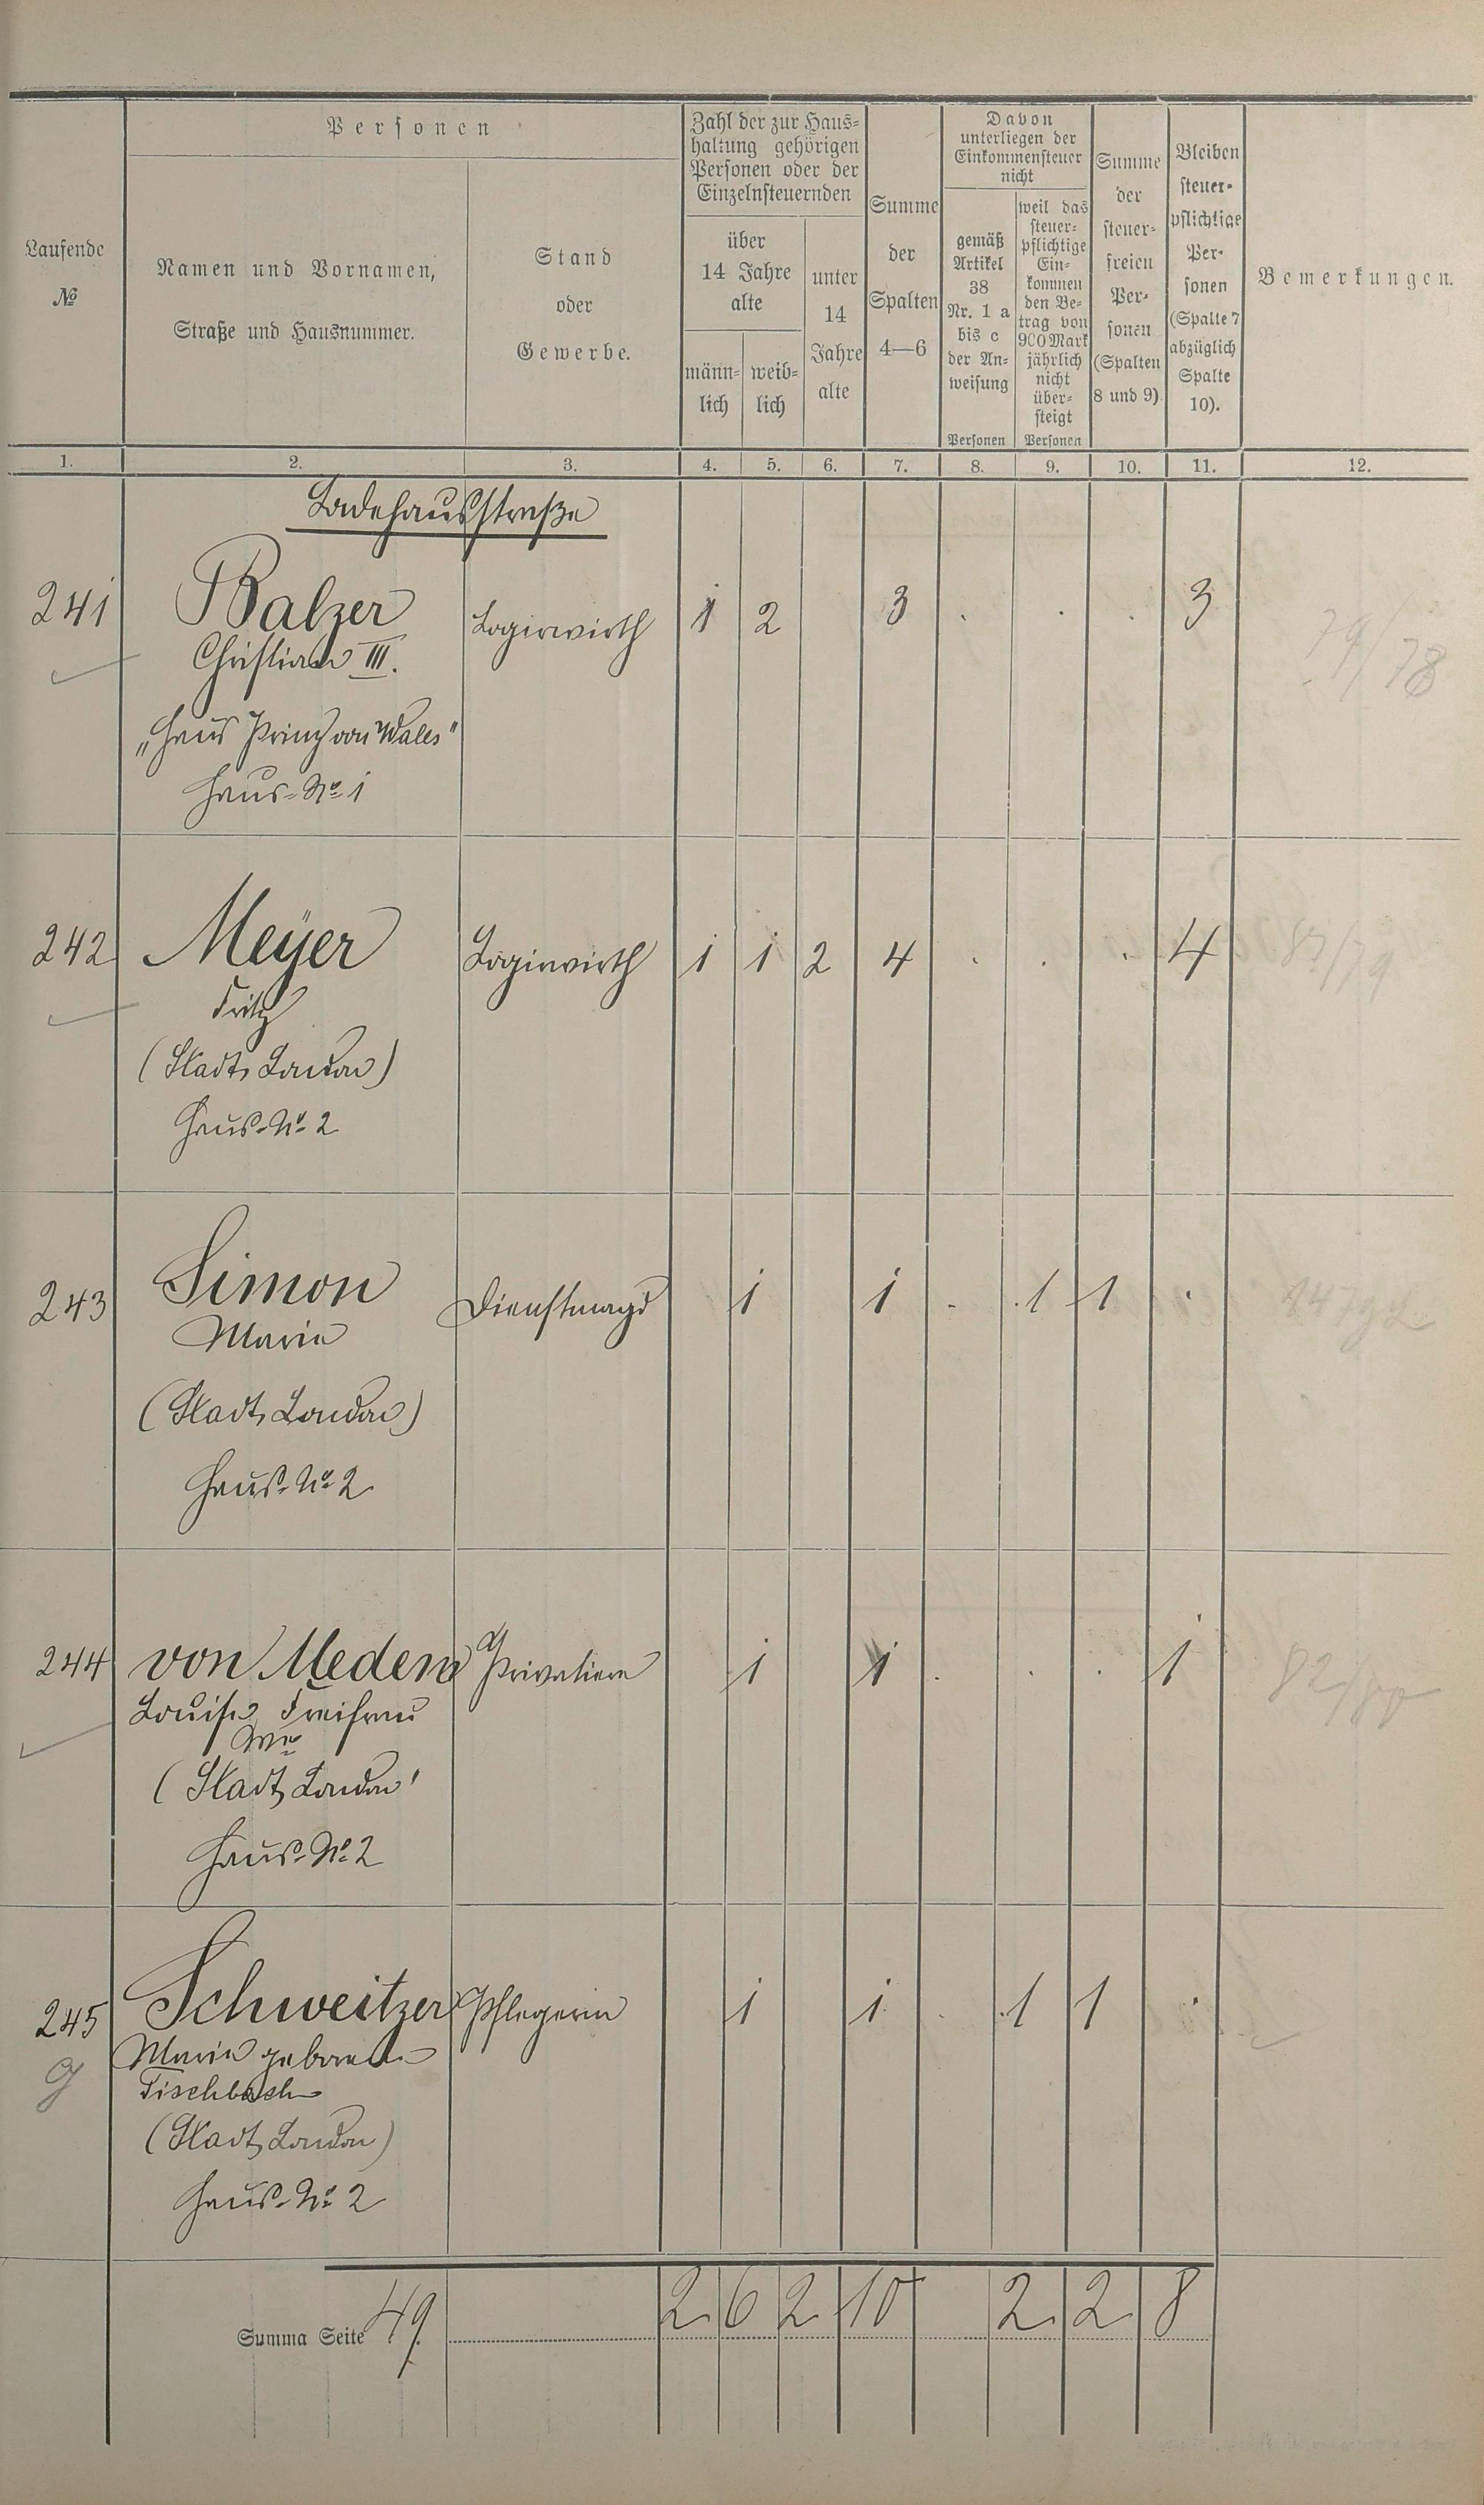 Personen
Zahl der zur Haus-
haltung gehörigen
Personen oder der
Einzelnsteuernden
Davon
unterliegen der
Einkommensteuer
nicht
Laufende
№
Namen und Vornamen,
Straße und Hausnummer.
Stand
oder
Gewerbe.
über
14 Jahre
alte
männ-
lich
weib-
lich
unter
14
Jahre
alte
Summe
der
Spalten
4—6
gemäß
Artikel
38
Nr. 1 a
bis c
der An-
weisung
Personen
weil das
steuer-
pflichtige
Ein-
kommen
den Be-
trag von
900 Mark
jährlich
nicht
über-
steigt
Personen
Summe
der
steuer-
freien
Per-
sonen
(Spalten
8 und 9).
Bleiben
steuer-
pflichtige
Per-
sonen
(Spalte 7
abzüglich
Spalte
10).
Bemerkungen.
1. 2. 3. 4. 5. 6. 7. 8. 9. 10. 11. 12.
Badehausstraße
241 Balzer Logirwirth 1 2 3 . . . 3
Christian III. 79/78
„Haus Prinz von Wales"
Haus-No 1
242 Meyer Logirwirth 1 1 2 4 . . . 4
Fritz
(Stadt London)
Haus-No 2
243 Simon Dienstmagd 1 1 . 1 1 .
Marie
(Stadt London)
Haus-No 2
244 von Medem Privatiere 1 1 . . . 1
Louise Freifrau
Wwe
(Stadt London"
Haus-No 2
245 Schweitzer Pflegerin 1 1 . 1 1 .
Marie geborene
Fischbach
(Stadt London)
Haus-No 2
Summa Seite 49. 2 6 2 10 2 2 8